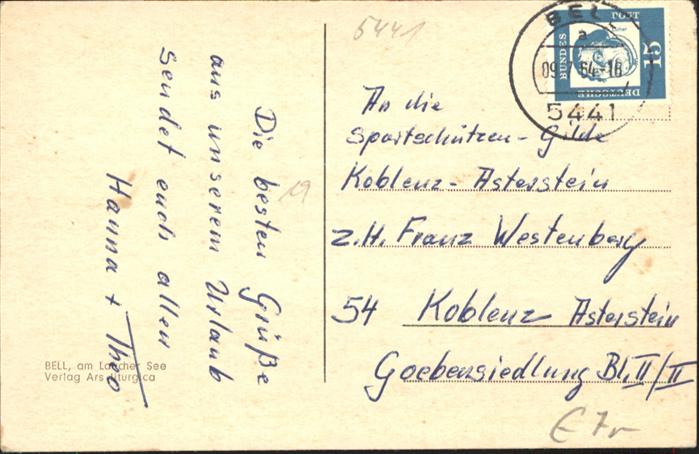 5441
Die besten Grüße
aus unserem Urlaub
sendet euch allen
Hanna + Theo
19
BELL, am Laacher See
Verlag Ars liturgica
BELL
a
09. 64-16
5441
DEUTSCHE
BUNDES
POST
15
An die
Sportschützen-Gilde
Koblenz-Asterstein
z.H. Franz Westenberg
54 Koblenz Asterstein
Goebensiedlung Bl. II/II
€ 7,-